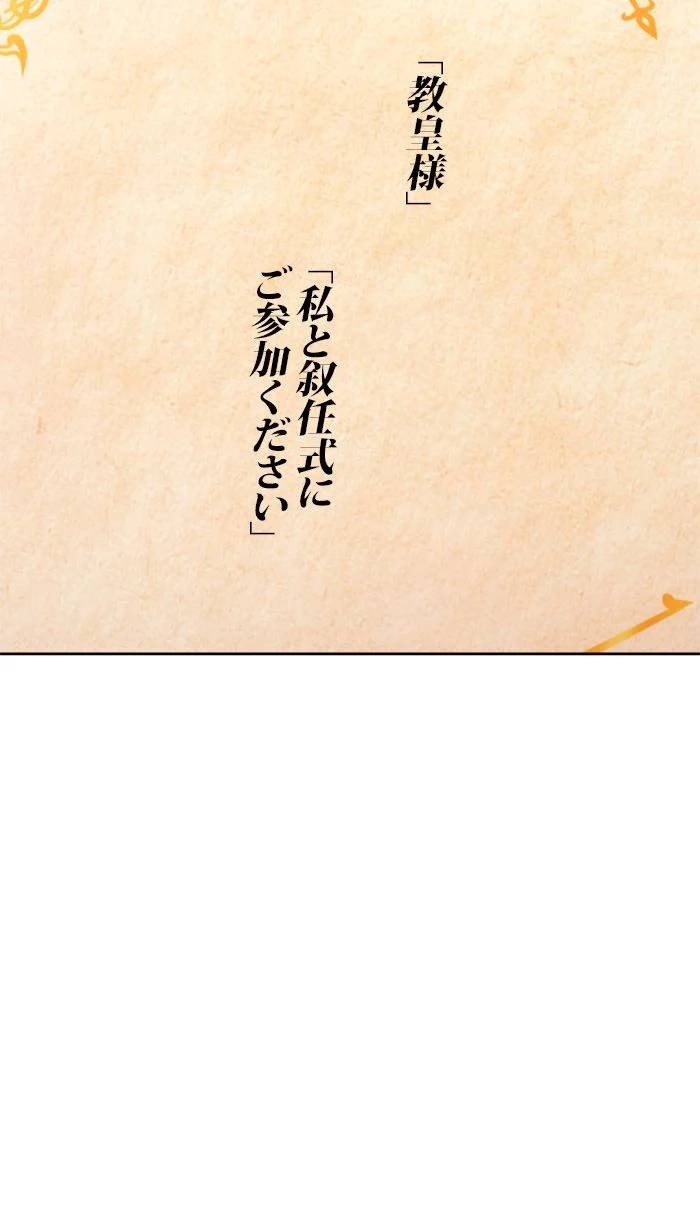 「教皇様」
「私と叙任式に
ご参加ください」